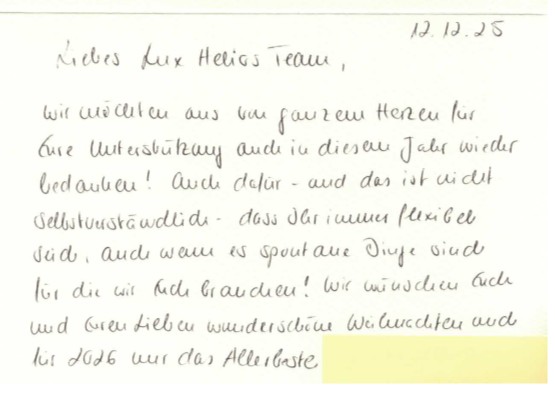 12.12.25
Liebes Lux Helios Team,
wir möchten uns von ganzem Herzen für
Eure Unterstützung auch in diesem Jahr wieder
bedanken! Auch dafür - und das ist nicht
selbstverständlich - dass Ihr immer flexibel
seid, auch wenn es spontane Dinge sind
für die wir Euch brauchen! Wir wünschen Euch
und Euren Lieben wunderschöne Weihnachten und
für 2026 nur das Allerbeste